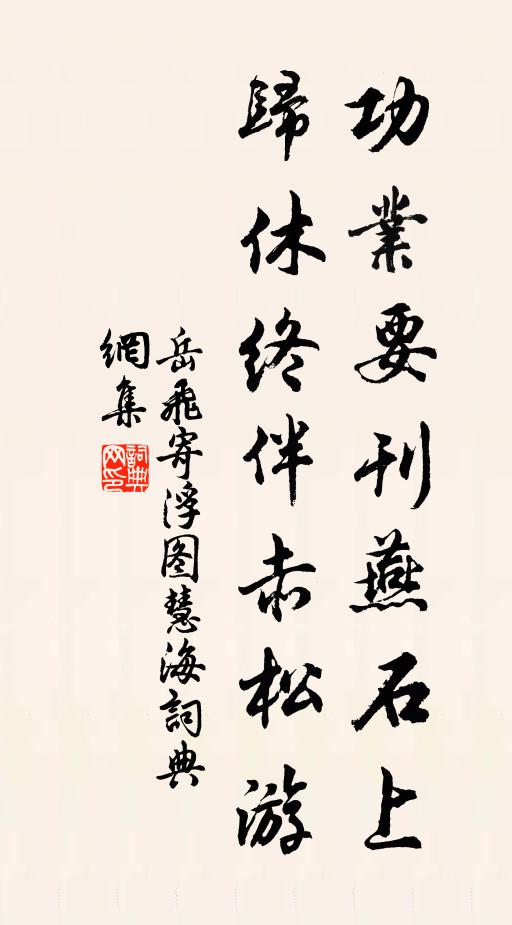 功業要刊燕石上
歸休終伴赤松游
岳飛寄浮图慧海詞典
網集
詞典
网印